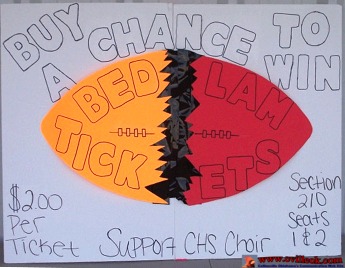 BUY A CHANCE TO WIN
BED LAM
TICK ETS
$2.00
Per
Ticket
Support CHS Choir
Section
210
Seats
1 & 2